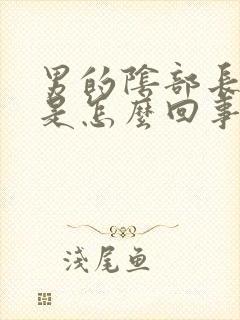 男的陰部長
是怎麼回事
淺尾鱼